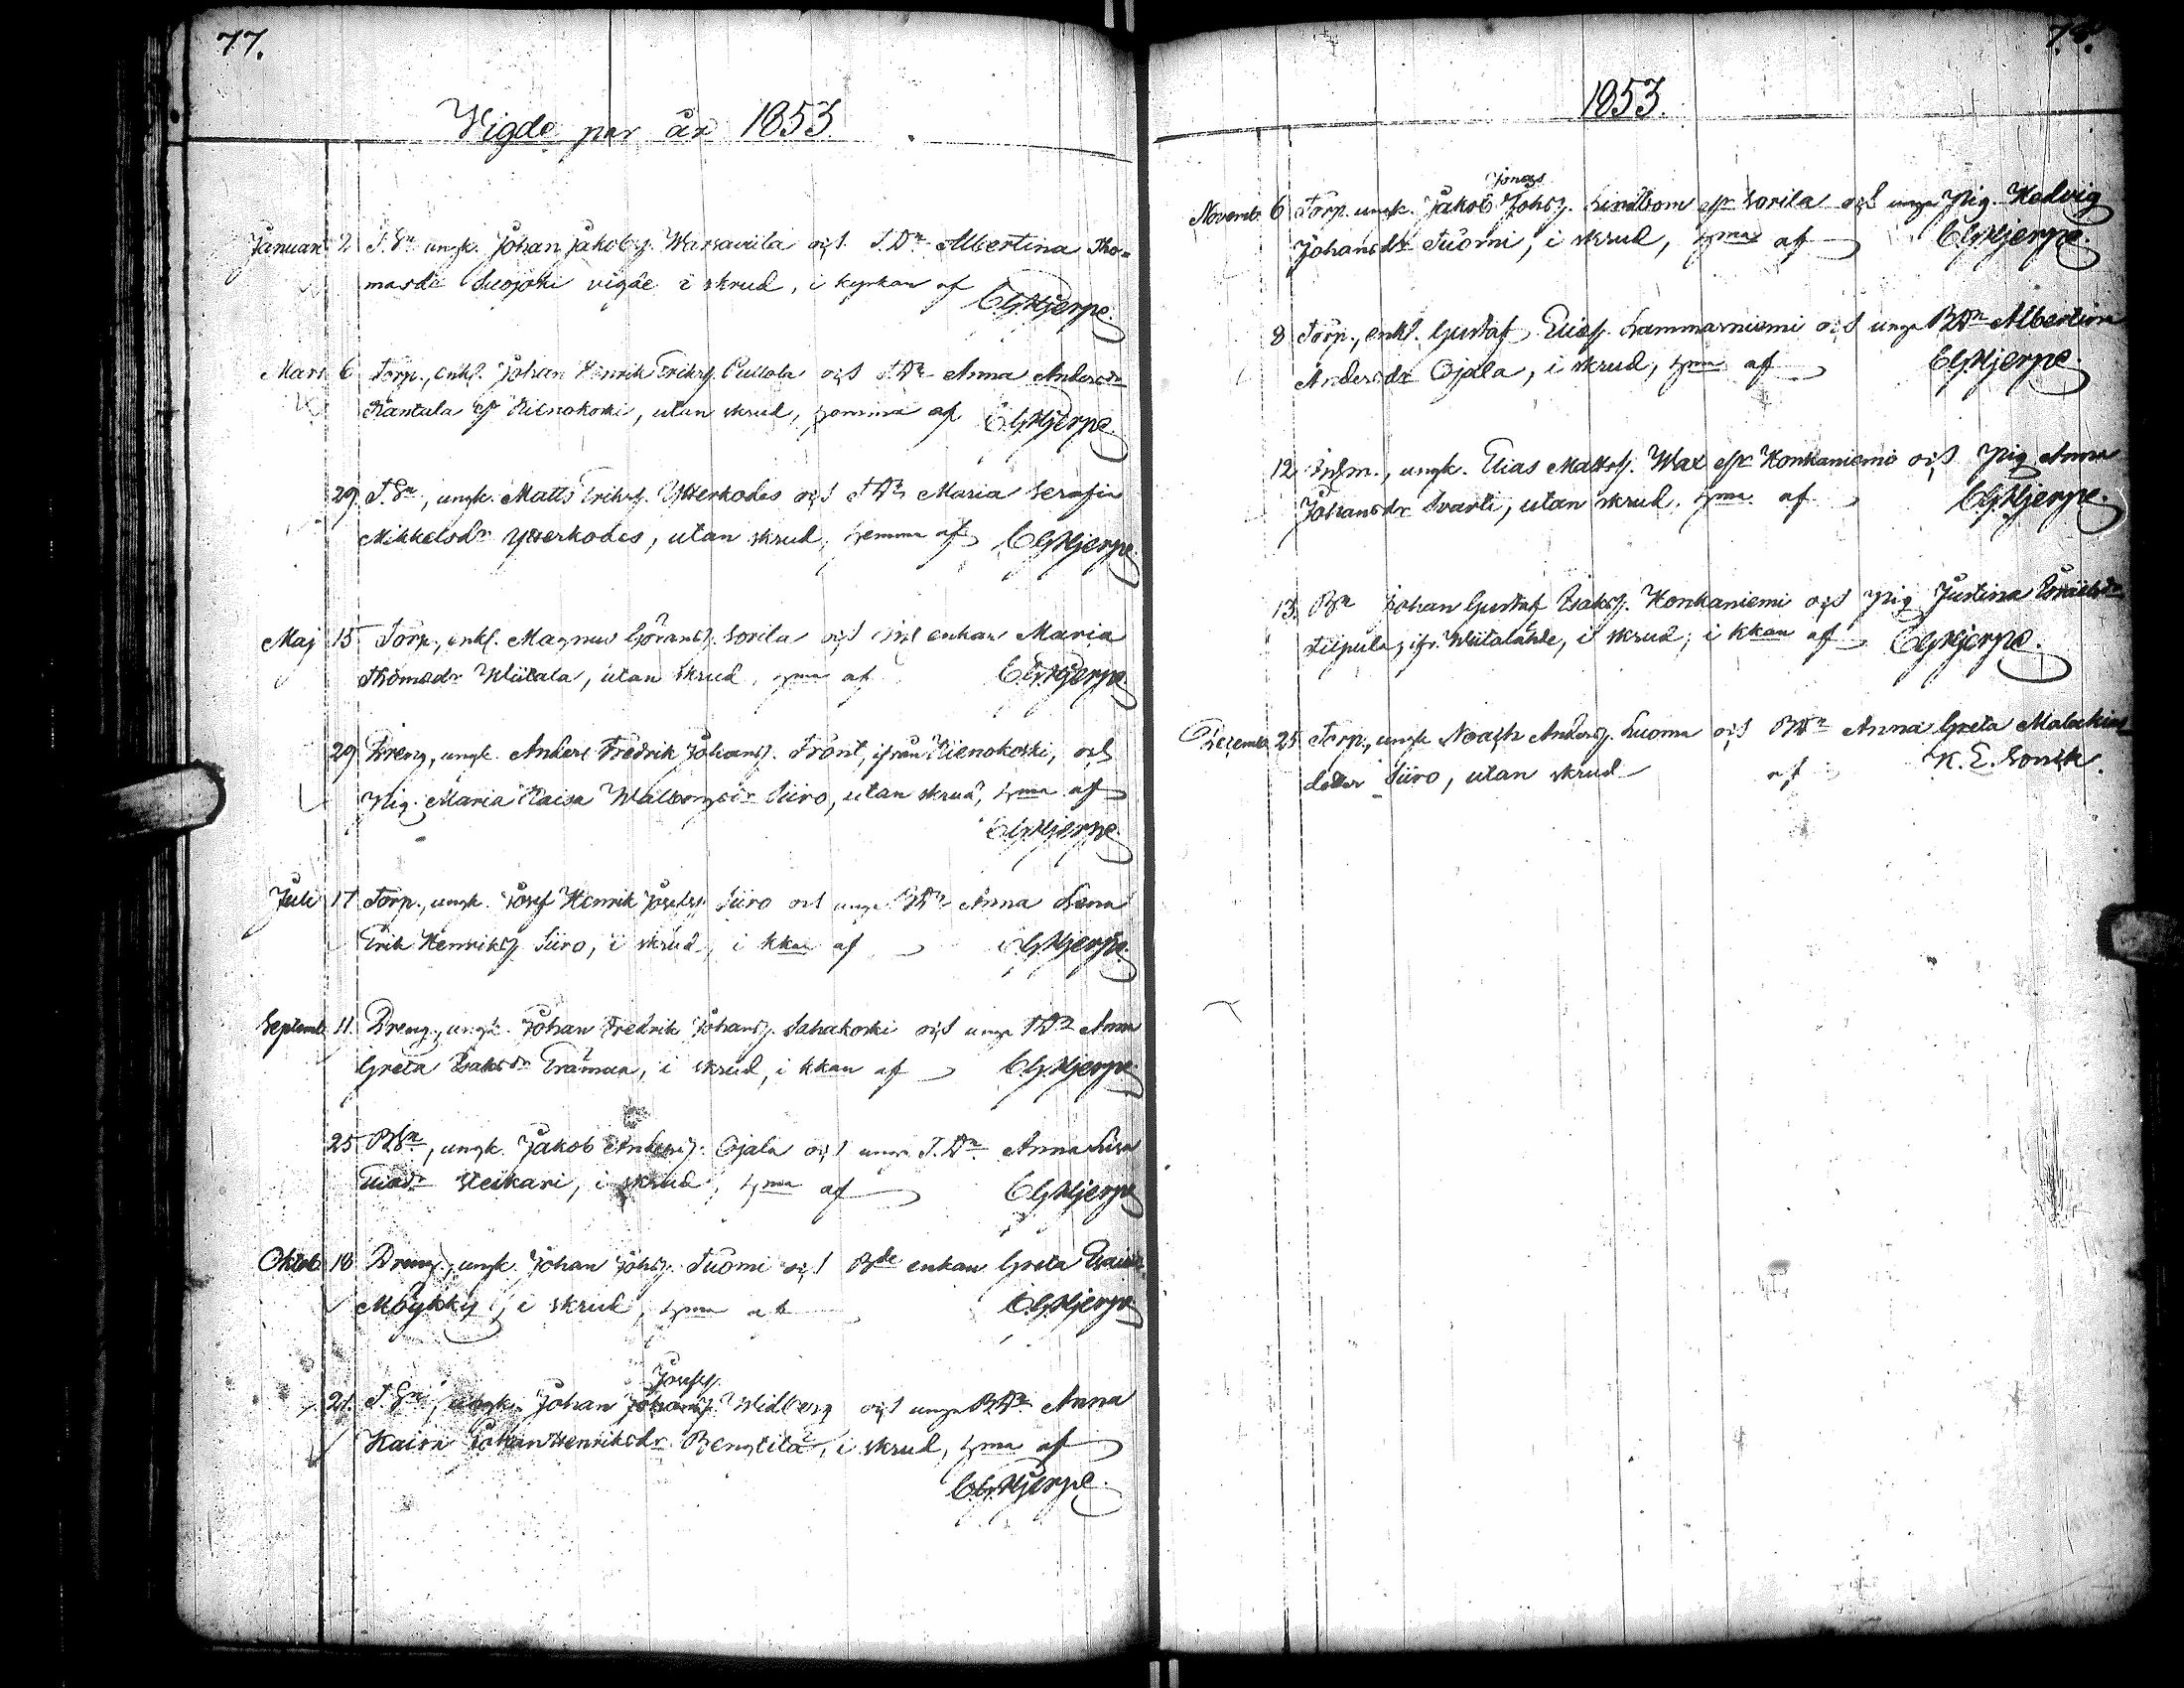 77.
Vigde par år 1853.
Januari 2. T.Sn ungk. Johan Jakobss. Warsawiila och T.Dr Albertina Tho-
masdr Suojoki vigde i skrud, i kyrkan af CGHjerpe.
Mars 6 Torp., enkl. Johan Henrik Erikss. Pullola och T.Dr Anna Andersdr
Rantala fr Kienokoski, utan skrud, hemma af CGHjerpe.
29. T.Sn, ungk. Matts Erikss. Ytterkodes och T.Dr Maria Serafia
Mikkelsdr Ytterkodes, utan skrud, hemma af CGHjerpe.
Maj 15 Torp., enkl. Magnus Göranss. Sorila och enkan Maria
Thomasdr Wiitala, utan skrud, hma af CGHjerpe.
29 Dreng, ungk. Anders Fredrik Johanss. Front, ifrån Kienokoski, och
Pig. Maria Caisa Walborgsdr Siiro, utan skrud, hma af
CGHjerpe.
Juli 17 Torp., ungk. Josef Henrik Josefss. Siiro och unga BDr Anna Lena
Erik Henriksdr Siiro, i skrud, i kkan af CGHjerpe.
Septemb. 11. Dreng, ungk. Johan Fredrik Johanss. Sahakoski och unga TDr Anna
Greta Isaksdr, i skrud, i kkan af CGHjerpe.
25 BSn, ungk. Jakob Anderss. Ojala och unga T.Dr Anna Lisa
Eliasdr Steikari, i skrud, hma af CGHjerpe
Oktob. 16 Dreng, ungk. Johan Johss. Tuomi och Bde enkan Greta
Möykky, i skrud, hma af CGHjerpe
Josefss.
21. T.Sn, ungk. Johan Johanss. Widberg och unga BDr Anna
Kaisa Johan Henriksdr Bengtila, i skrud, hma af
CGHjerpe.
78.
1853.
Jonas
Novemb. 6 Torp. ungk. Jakob Johss. Lindbom fr Sorila och unga Pig. Hedvig
Johansdr Tuomi, i skrud, hma af CGHjerpe.
8 Torp., enkl. Gustaf Eliass. Lammasniemi och unga BDr Albertina
Andersdr Ojala, i skrud, hma af CGHjerpe.
12 Inhm., ungk. Elias Mattss. Wax fr Honkaniemi och Pig Anna
Johansdr Svarti, utan skrud, hma af CGHjerpe.
13. Bn Johan Gustaf Isakss. Honkaniemi och Pig Justina
, ifr. Wiitalähde, i skrud, i kkan af CGHjerpe.
December 25 Torp., ungk Noach Anderss. Luoma och BDr Anna Greta Malakias
dotter Siiro, utan skrud af K. E.